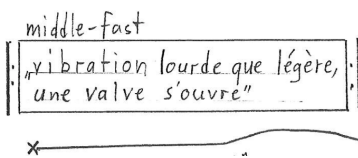 middle-fast
„vibration lourde que légère,
une valve s'ouvre"